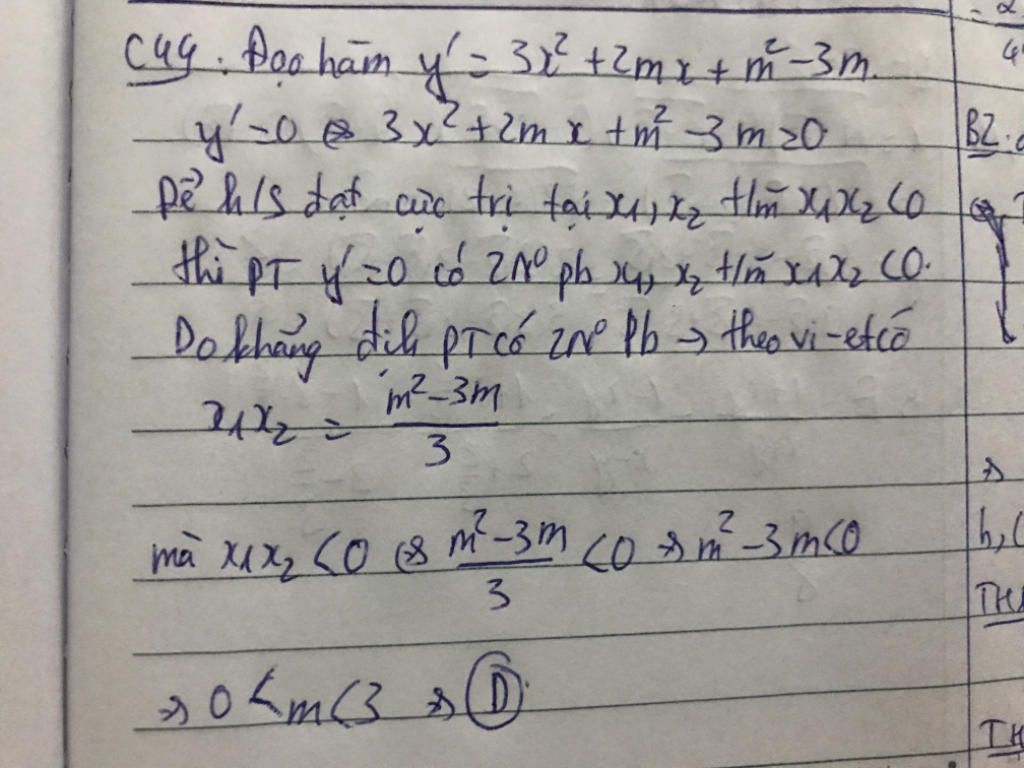 C44. Đạo hàm y' = 3x² + 2mx + m² - 3m.
y' = 0 ⇔ 3x² + 2mx + m² - 3m = 0
Để h/s đạt cực trị tại x₁, x₂ t/m x₁x₂ < 0
thì PT y' = 0 có 2N⁰ pb x₁, x₂ t/m x₁x₂ < 0.
Do khẳng định PT có 2N⁰ Pb → theo vi-et có
x₁x₂ = \frac{m² - 3m}{3}
mà x₁x₂ < 0 ⇔ \frac{m² - 3m}{3} < 0 ⇒ m² - 3m < 0
⇒ 0 < m < 3 ⇒ D.
B2.
h, (
TH